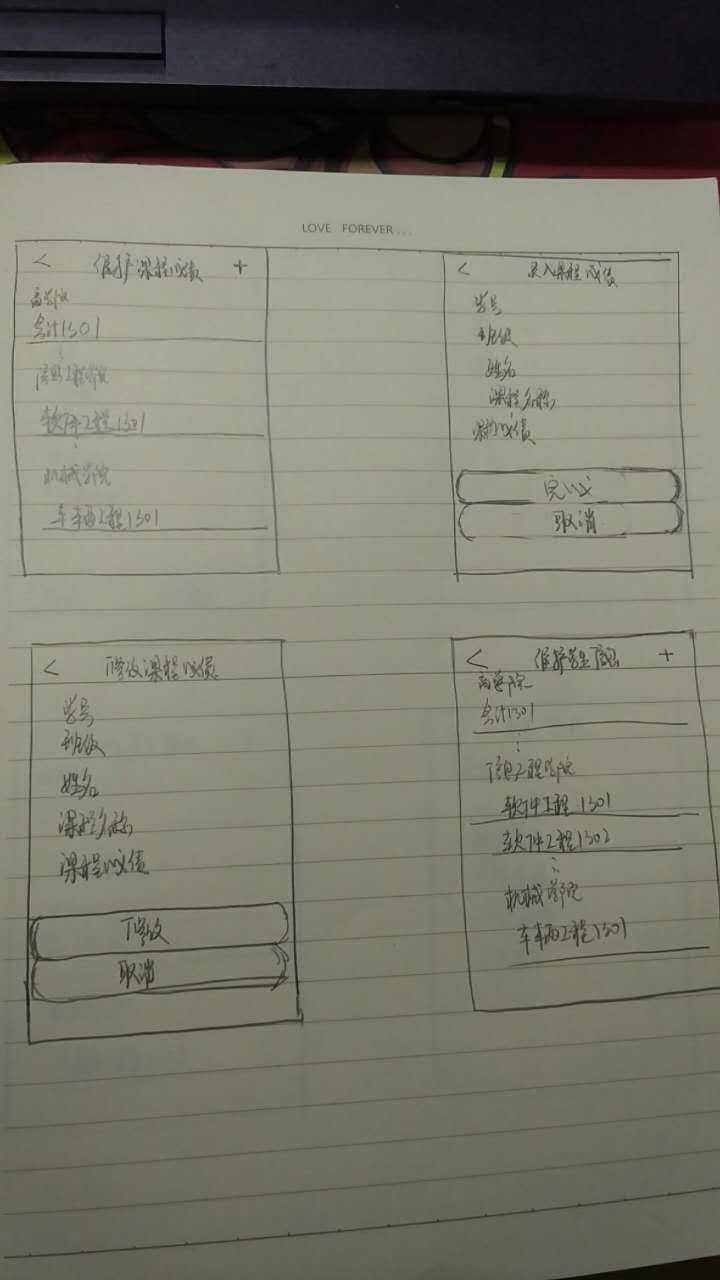 LOVE FOREVER...
< 维护课程成绩 +
商学院
会计1301
信息工程学院
软件工程1301
机械学院
车辆工程1301
< 录入课程成绩
学号
班级
姓名
课程名称
课程成绩
完成
取消
< 修改课程成绩
学号
班级
姓名
课程名称
课程成绩
修改
取消
< 维护学生信息 +
商学院
会计1301
信息工程学院
软件工程1301
软件工程1302
机械学院
车辆工程1301